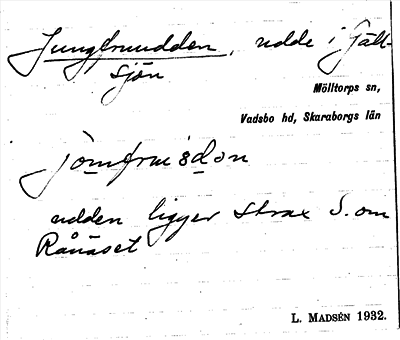 Jungfruudden, udde i Fält-
sjön
Mölltorps sn,
Vadsbo hd, Skaraborgs län
jomfruisdon
udden ligger strax S. om
Rånäset
L. MADSÉN 1932.